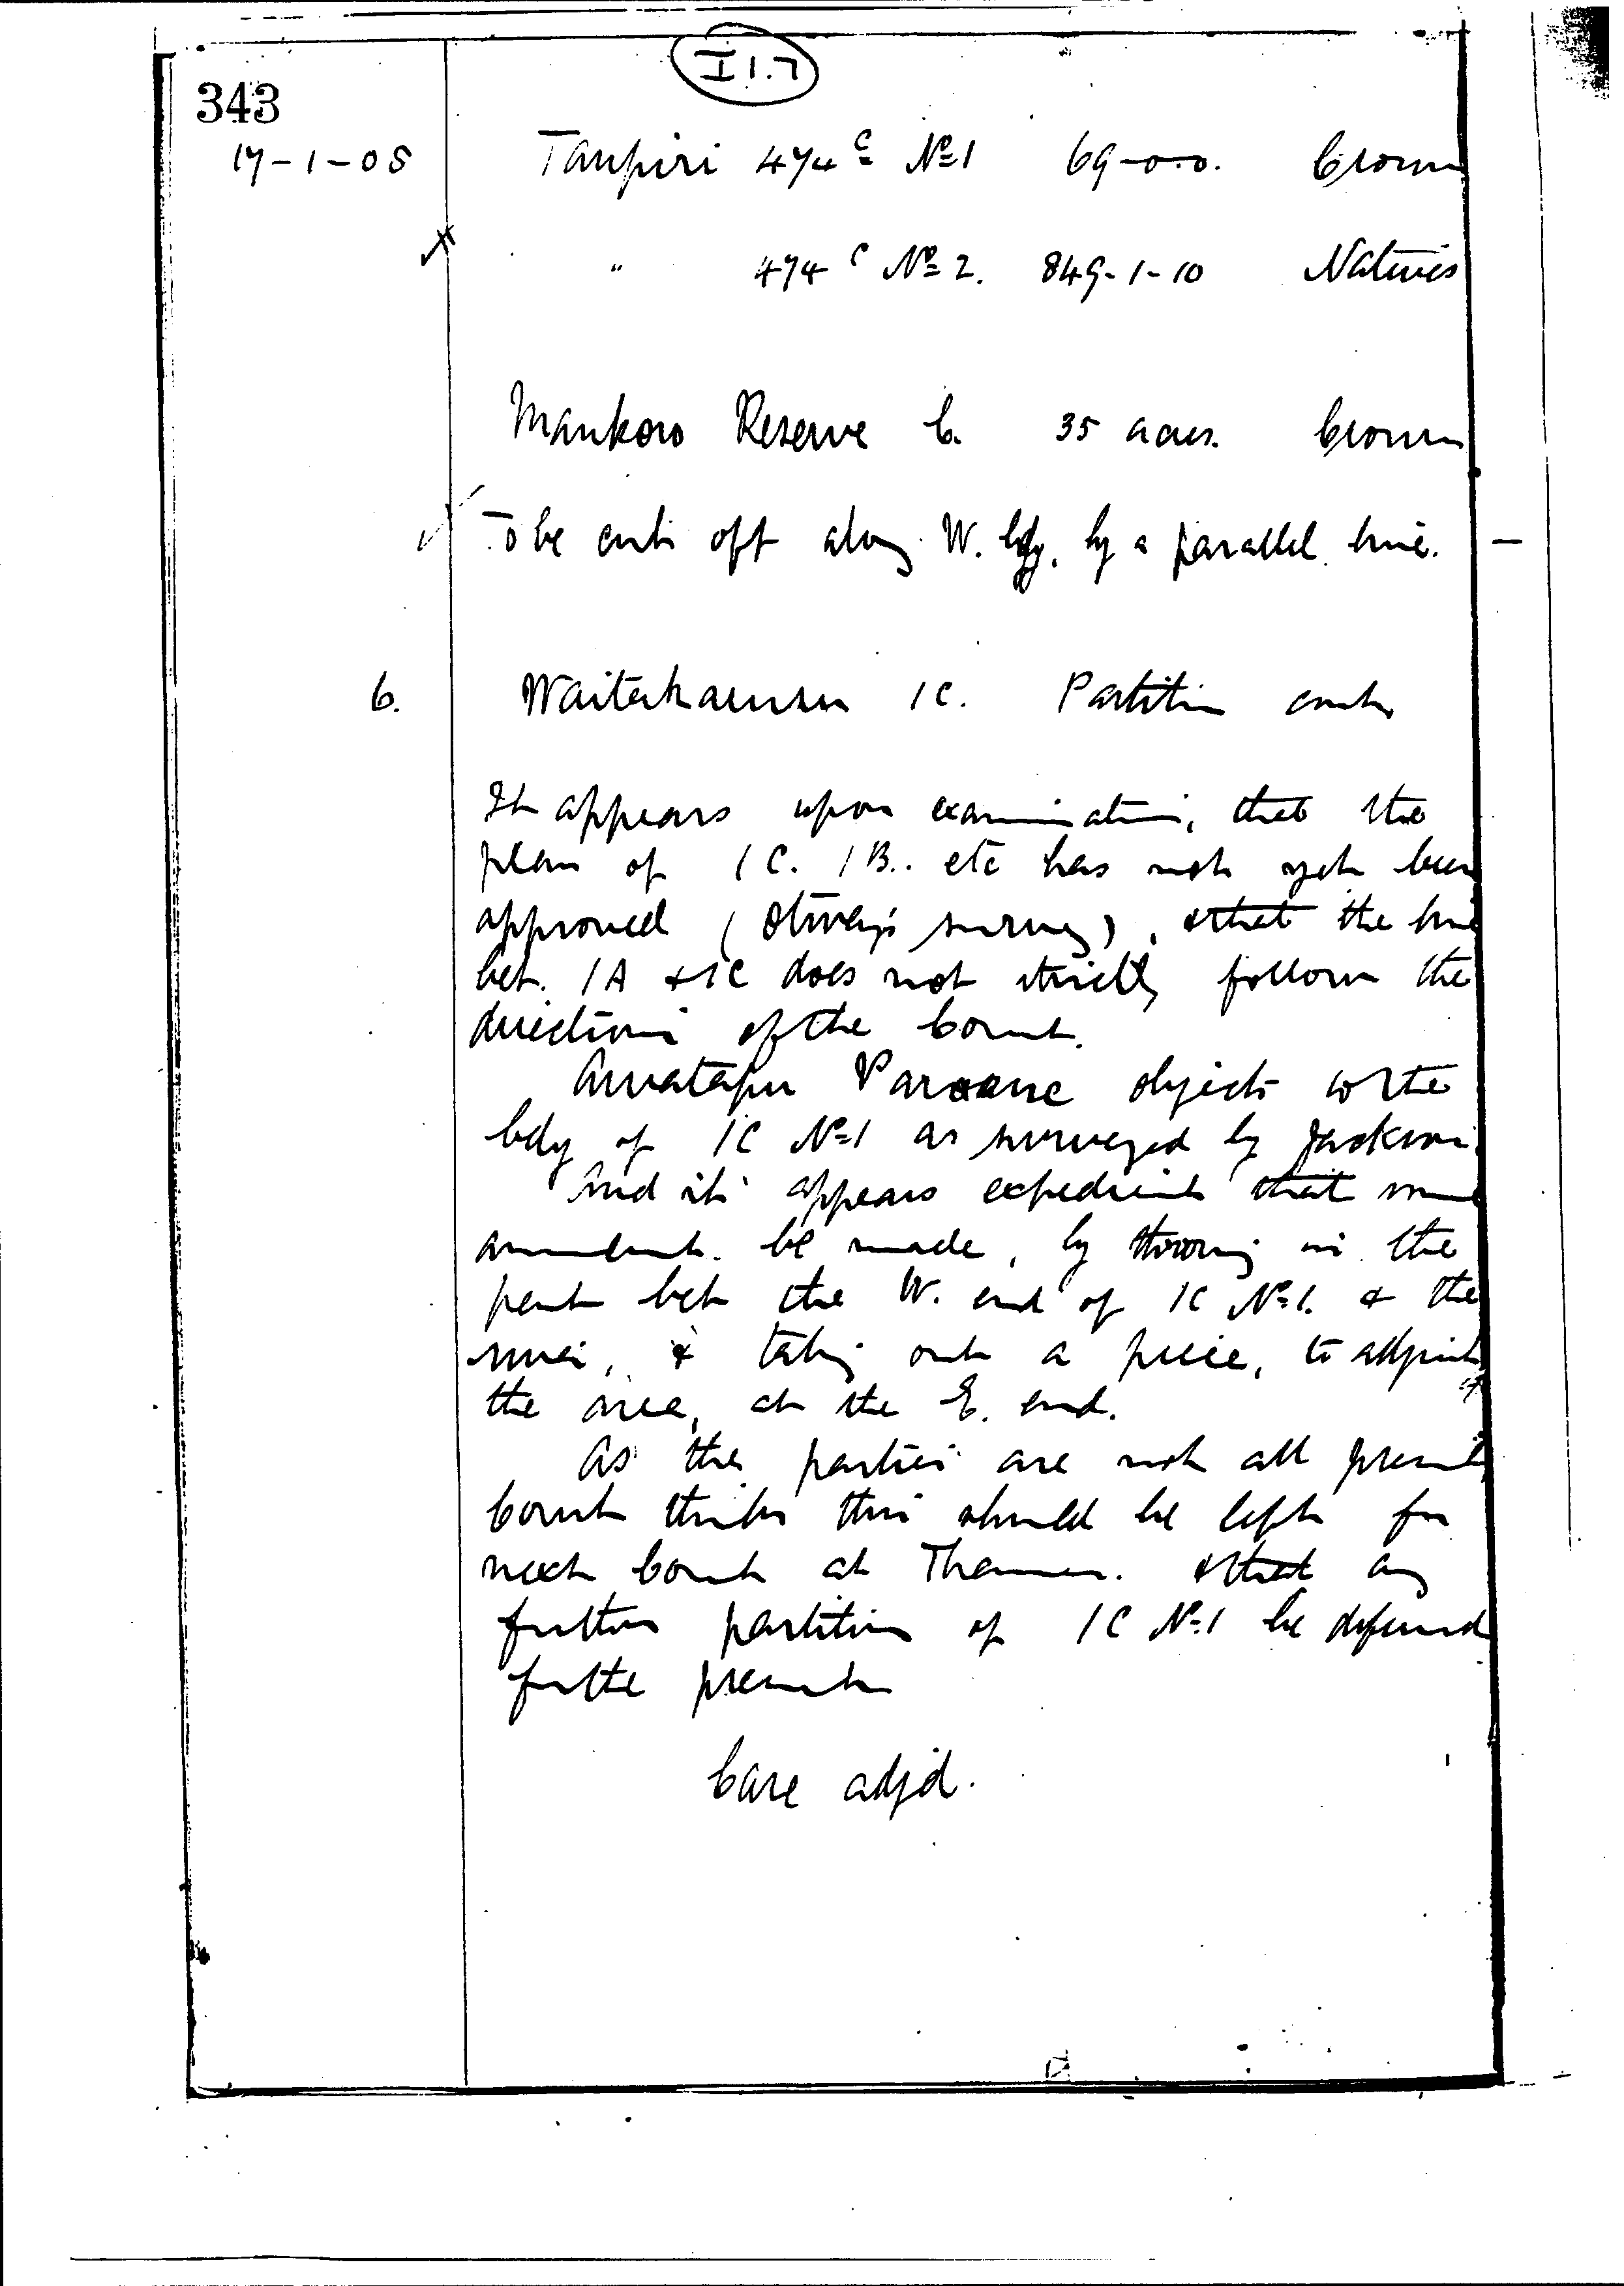 I 1.7
343
17-1-05 Taupiri 474 C No 1 69-0-0. Crown
" 474 C No 2. 849-1-10 Natives
Maukoro Reserve C. 35 acres. Crown
To be cut off along W. bdy. by a parallel line.
6. Waitakaruru 1C. Partition contd
It appears upon examination, that the
plan of 1C. 1B.. etc has not yet been
approved (Otway's survey), & that the line
bet. 1A & 1C does not strictly follow the
directions of the Court.
Paraone objects to the
bdy of 1C No 1 as surveyed by Jackson
And it appears expedient that some
amendmt. be made, by throwing in the
part bet the W. end of 1C No 1. & the
river, & taking out a piece, to adjust
the area, at the E. end.
As the parties are not all present
Court thinks this should be left for
next Court at Thames. & that any
further partition of 1C No 1 be deferred
for the present
Case adjd.